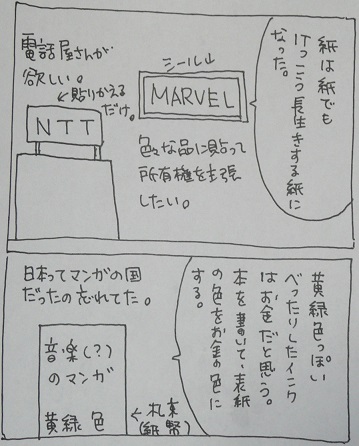 紙は紙でも
けっこう長生きする紙に
なった。
シール↓
MARVEL
色々な品に貼って
所有権を主張
したい。
電話屋さんが
欲しい。
↙貼りかえる
だけ。
NTT
黄緑色っぽい
べったりしたインク
はお金だと思う。
本を書いて、表紙
の色をお金の色に
する。
日本ってマンガの国
だったの忘れてた。
音楽(?)
のマンガ
黄緑色
←札束
(紙幣)